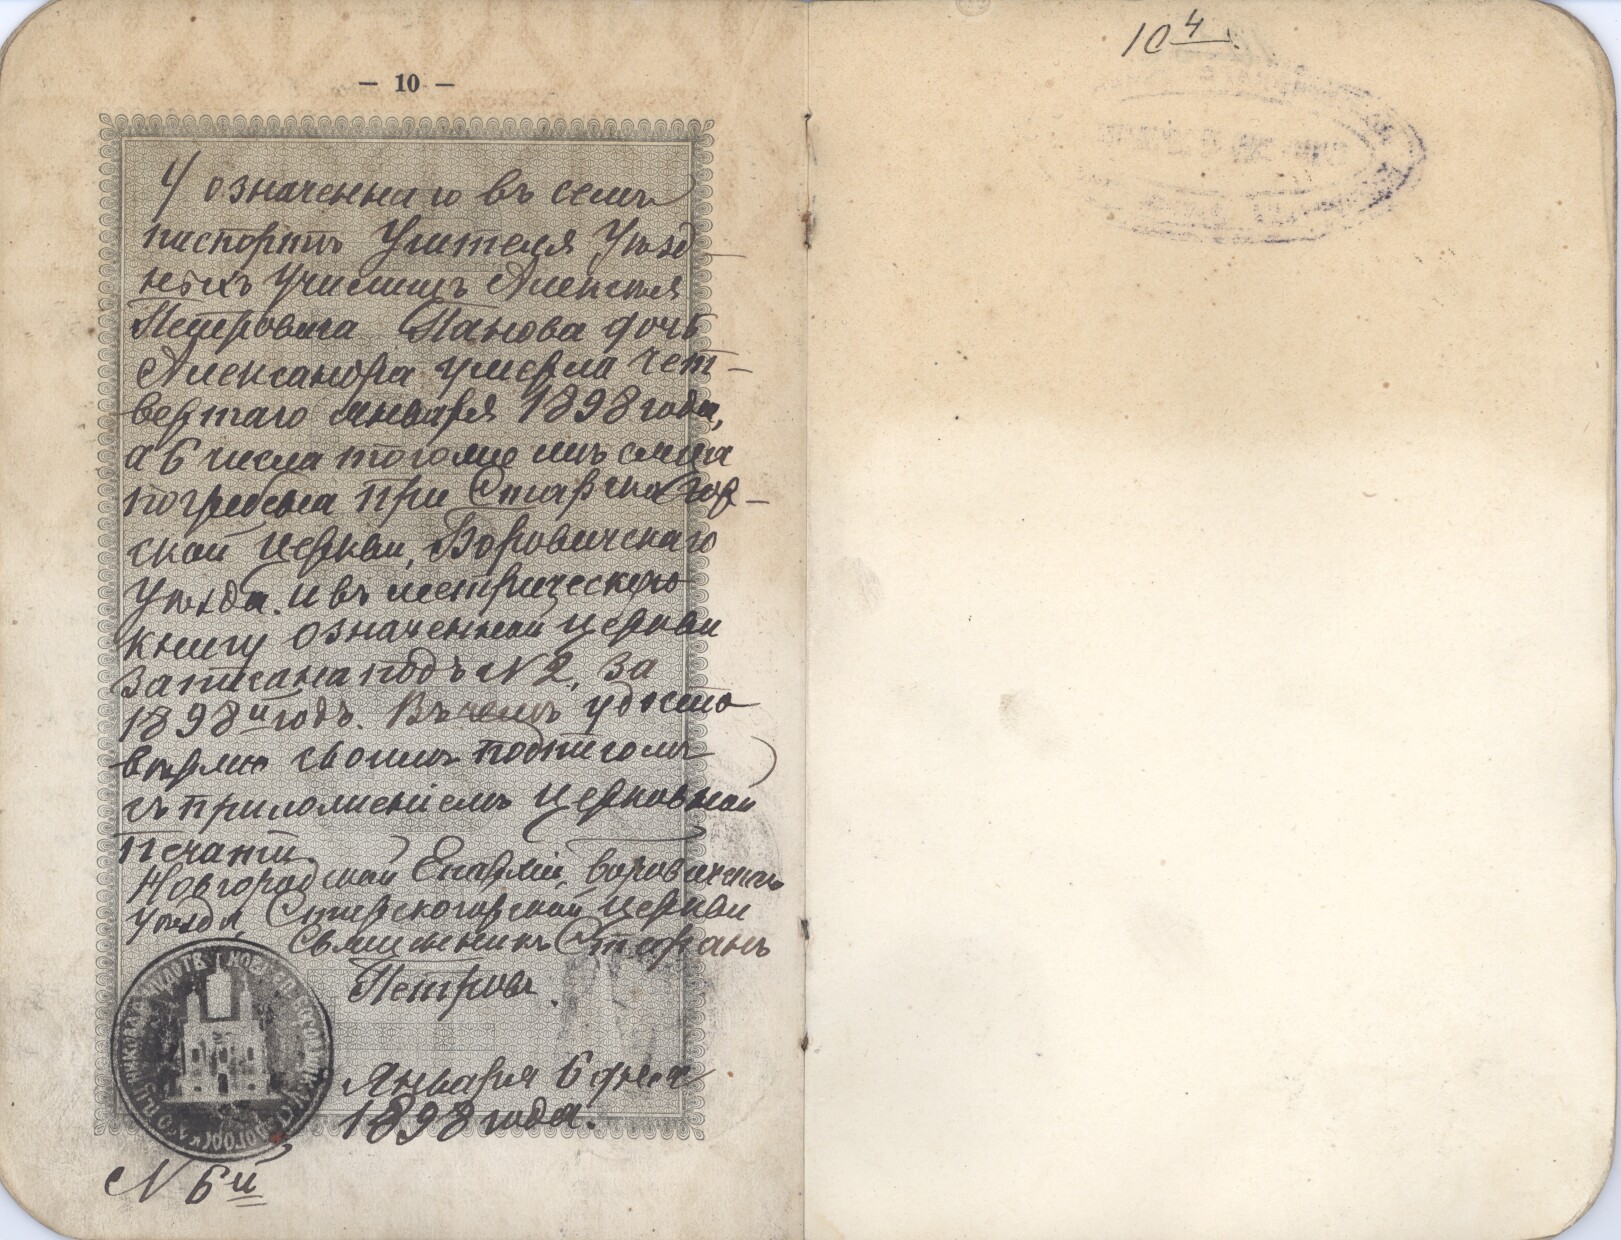 — 10 —
У означеннаго въ семъ
паспортѣ Учителя Уѣзд-
ныхъ Училищъ Алексѣя
Петровича Панова дочь
Александра умерла чет-
вертаго Января 1898 года,
а 6 числа тогоже мѣсяца
погребена при Старскогор-
ской церкви, Боровичскаго
Уѣзда. и въ метрическую
книгу означенной церкви
записана подъ № 2, за
1898й годъ. Въ чемъ удосто
вѣряю своимъ подписомъ
съ приложеніемъ церковной
печати.
Новгородской Епархіи, Боровичскаго
уѣзда, Старскогорской церкви
Священникъ Стефанъ
Петровъ.
Января 6 дня
1898 года.
№ 6й
104